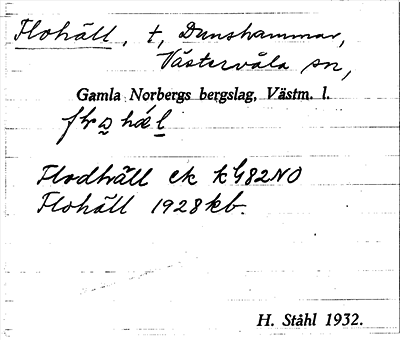 Flohäll, t, Dunshammar,
Västervåla sn,
Gamla Norbergs bergslag, Västm. l.
Flodhäll ek kG82NO
Flohäll 1928 kb.
H. Ståhl 1932.